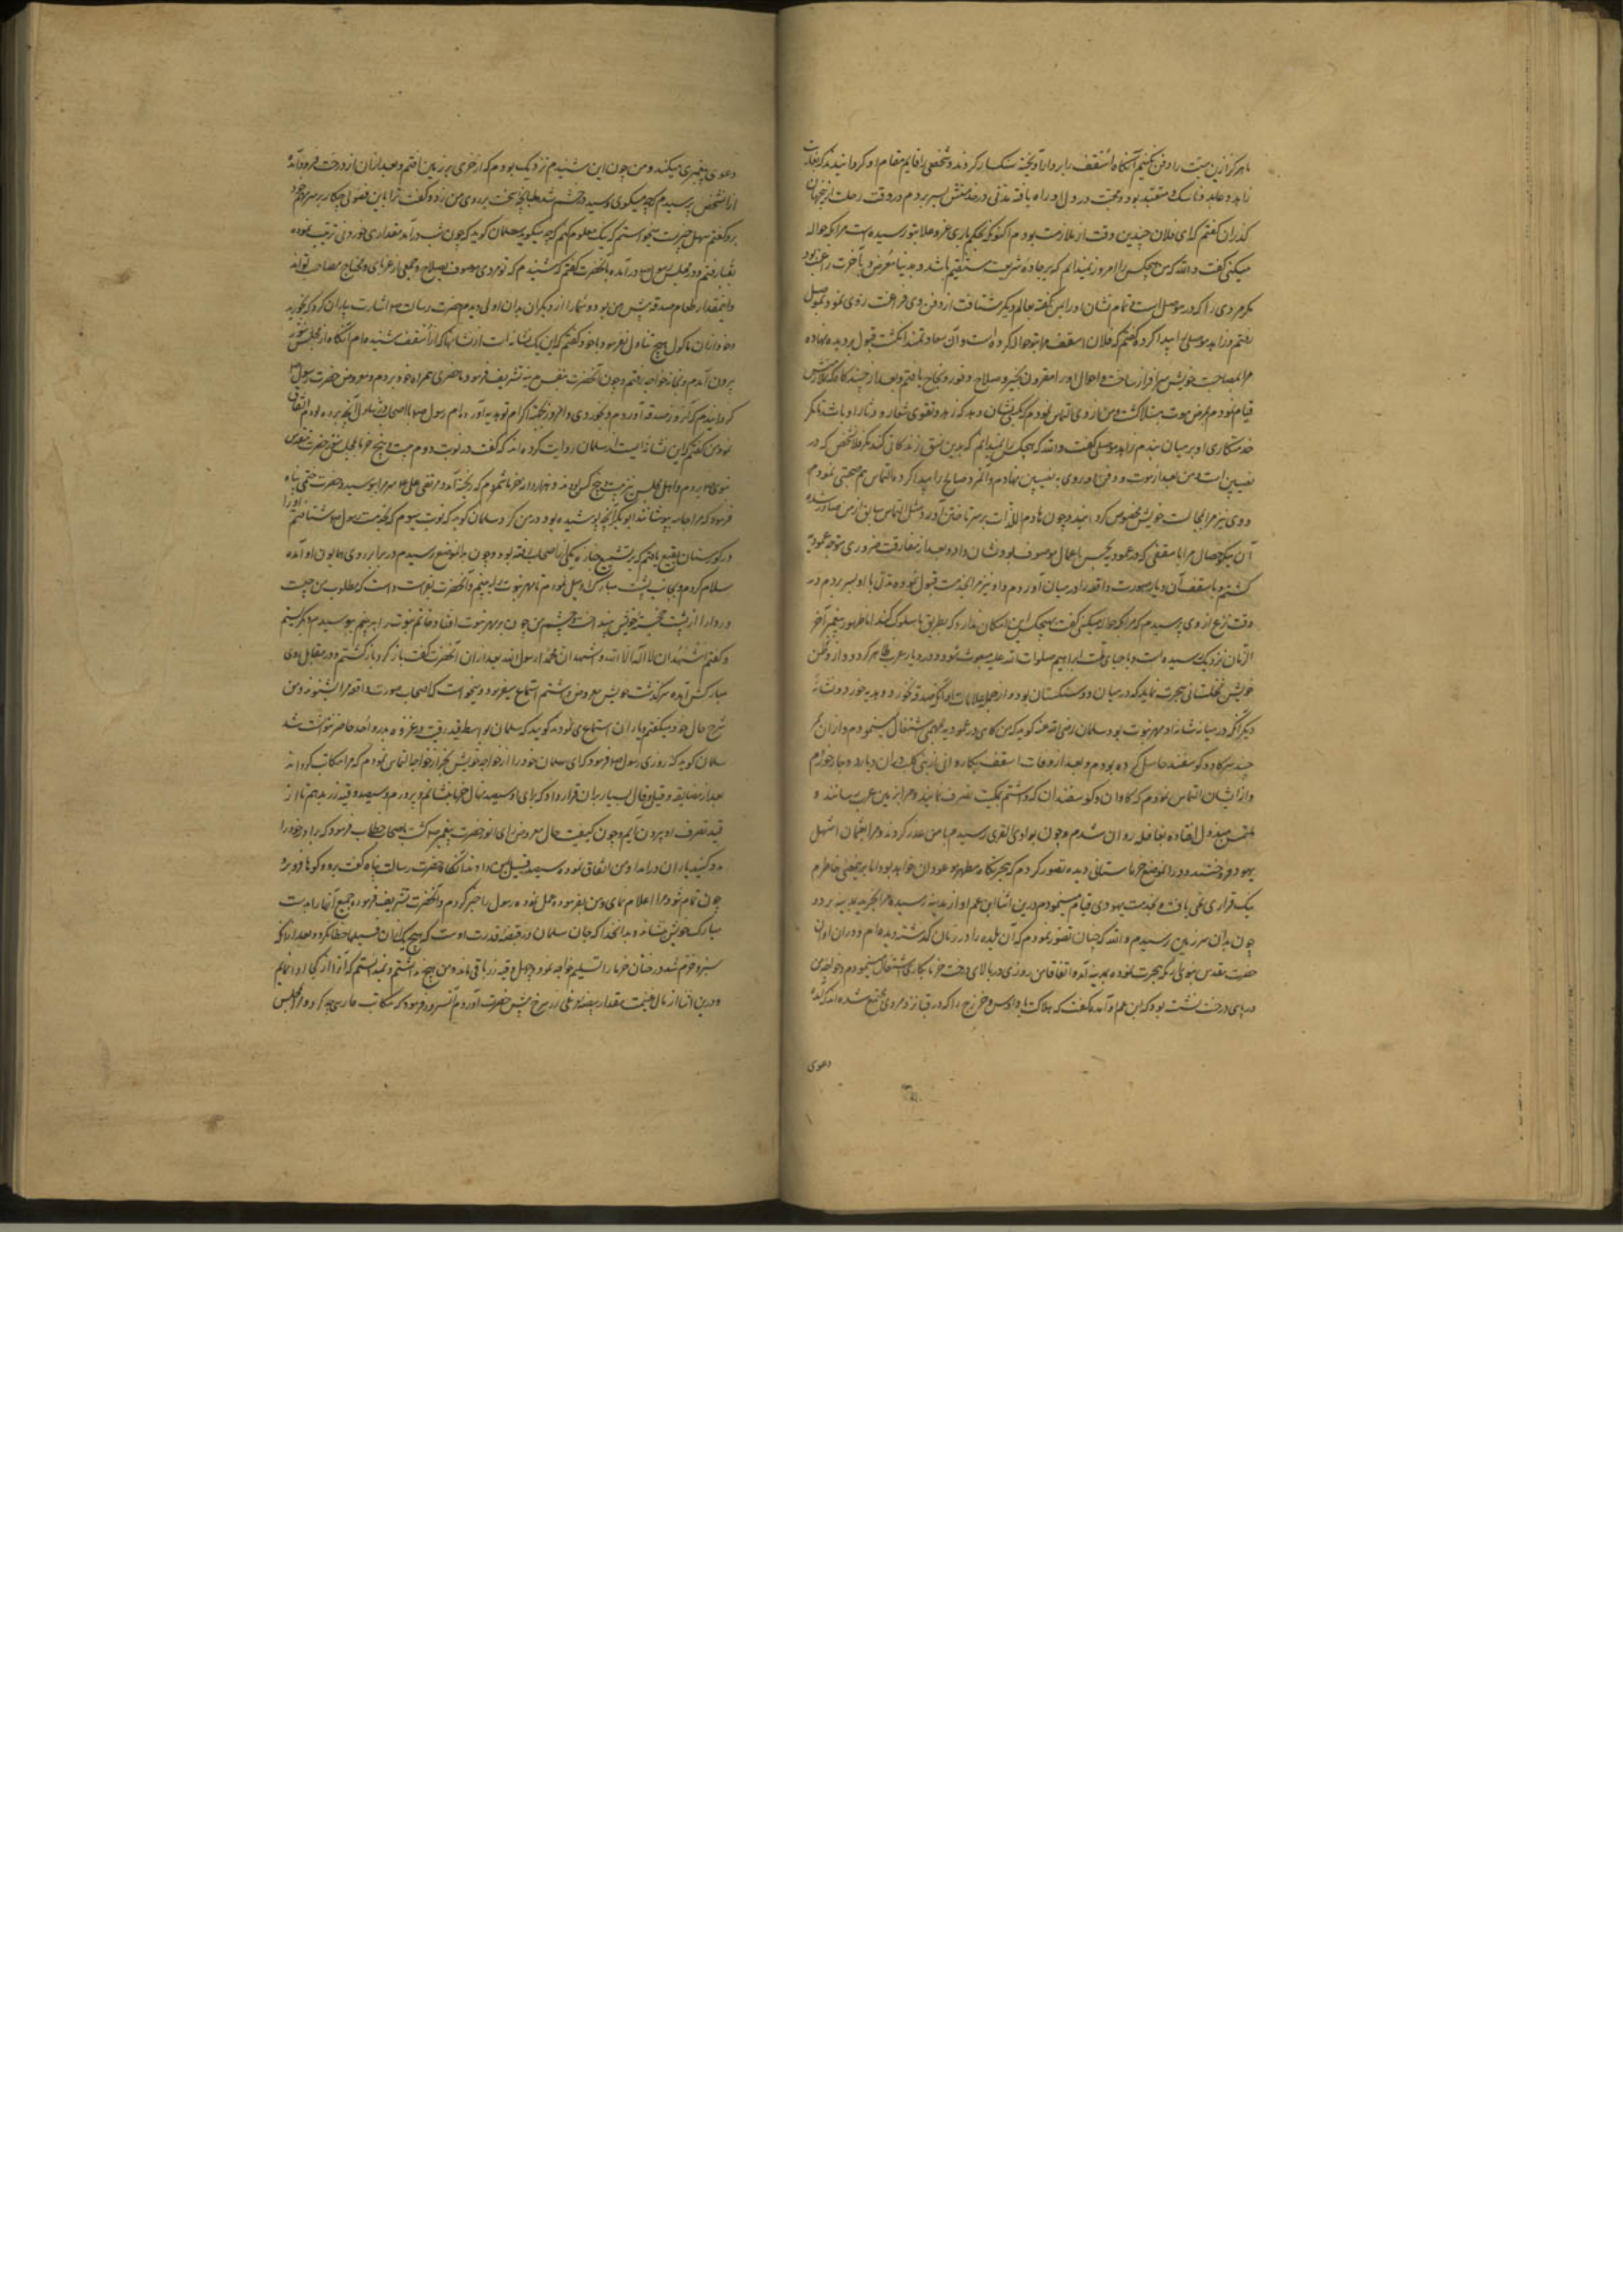 ما هرگز این میت را دفن نکنیم آنگاه اسقف را بر دار آویخته سنگسار کردند و شخصی را قایم مقام او گردانیدند که بغایت
زاهد و عابد و ناسک و متعبد بود و محبت در دل او راه یافته مدتی در خدمتش بسر بردم در وقت رحلت ازین جهان
گذران گفتم که ای فلان چندین وقت از ملازمت بودم اکنون که حکم باری عز و علا بتو رسیده است مرا بکه حواله
میکنی گفت والله که من هیچکس را امروز نمیدانم که بر جاده شریعت مستقیم باشد و بدنیا معرض و بآخرت راغب بود
مگر مردی را که در موصل است و تمام نشان او را بمن گفته بعالم دیگر شتافت از دفن وی فراغت روی نمود بموصل
رفتم و زاهد موصلی را پیدا کرده گفتم که فلان اسقف مرا بتو حواله کرده است و آن سعادتمند انگشت قبول بر دیده نهاده
مرا بمصاحبت خویش سرافراز ساخت و احوال او را مقرون بخیر و صلاح و فوز و نجاح یافتم و بعد از چند گاه که بملازمتش
قیام نمودم بمرض موت مبتلا گشت و من از وی التماس نمودم که بکسی نشان دهد که زهد و تقوی شعار و دثار او باشد تا کمر
خدمتکاری او بر میان بندم زاهد موصلی گفت والله که هیچکس را نمیدانم که بدین نسق زندگانی کند مگر فلان شخص که در
نصیبین است و من بعد از موت و دفن او روی به نصیبین نهادم و آنمرد صالح را پیدا کرده التماس هم صحبتی نمودم
و وی نیز مرا بمجالست خویش مخصوص گردانید و چون هادم اللذات بر سر او تاختن آورد مثل التماس سابق از من صادر شده
آن نیکو خصال مرا باسقفی که در عموریه بحسن اعمال موصوف بود نشان داد و بعد از مفارقت ضروری متوجه عموریه
گشتم و باسقف آن دیار صورت واقعه را در میان آوردم و او نیز مرا بخدمت قبول نموده مدتی با او بسر بردم در
وقت نزع از وی پرسیدم که مرا بکه حواله میکنی گفت هیچکس این امکان ندارد که بطریق ما سلوک کند اما ظهور پیغمبر آخر
الزمان نزدیک رسیده است و باحیای ملت ابراهیم صلوات الله علیه مبعوث شود و در دیار عرب ظاهر گردد و از وطن
خویش بنخلستانی هجرت نماید که در میان دو سنگستان بود و از جمله علامات او آنکه صدقه نخورد و هدیه خورد و نشانه
دیگر آنکه در میان شانه او مهر نبوت بود سلمان رضی الله عنه گوید که من گاهی در عموریه بمهمی اشتغال مینمودم و از آن ممر
چند سر گاو و گوسفند حاصل کرده بودم و بعد از وفات اسقف بکاروانی از بنی کلب در آن دیار دچار خوردم
و از ایشان التماس نمودم که گاوان و گوسفندان که داشتم بملکیت تصرف نمایند و مرا بزمین عرب رسانند و
ملتمس مبذول افتاده بقافله روان شدم و چون بوادی القری رسیدم با من غدر کردند و مرا بعثمان اشهل
یهود فروختند و در انموضع خرماستانی دیده تصور کردم که هجرتگاه مطهر موعود آن خواهد بود اما برین معنی خاطرم
نیک قراری نمی یافت و بخدمت یهودی قیام مینمودم درین اثنا ابن عم او از مدینه رسیده مرا بخرید بمدینه برد و
چون بدان سرزمین رسیدم والله که چنان تصور نمودم که آن بلده را در زمان گذشته دیده ام و در آن اوان
حضرت مقدس نبوی بمکه هجرت نموده بمدینه آمد و اتفاقا من روزی در بالای درخت خرما بکاری اشتغال مینمودم و خواجه من
در پای درخت نشسته بود که ابن عم او آمده گفت که هلاکت باد اوس و خزرج را که در قبا نزد مردی مجتمع شده اند که آمده
دعوی
دعوی پیغمبری میکند و من چون این شنیدم نزدیک بودم که از خری بر زمین افتم و بعد از آن از درخت فرود آمده
از انشخص پرسیدم که چه میگوی او سید در خشم شد طپانچه سخت بر روی من زد و گفت ترا باین فضولی چکار بر سر مهم خود
برو گفتم سهل چیزیست میخواستم که نیک معلوم کنم که چه میگوید سلمان گوید که چون شب درآمد مقداری خوردنی ترتیب نموده
بقبا رفتم و در مجلس رسول درآمده بانحضرت گفتم که شنیدم که تو مردی موصوف بصلاح و جمعی از غربای و محتاج مصاحب تواند
و اینمقدار طعام صدقه پیش من بود و شما را از دیگران بدان اولی دیدم حضرت رسالت اشارت بیاران کرد که بخورید
و خود از آن ماکول هیچ تناول نفرمود با خود گفتم که این یک نشانه است از نشانها که از اسقف شنیده ام آنگاه از مجلسش
بیرون آمدم و بخانه خواجه رفتم و چون آنحضرت بنفس مدینه تشریف فرمود ماحضری همراه خود بردم و معروض حضرت رسول
گردانیدم که آنروز صدقه آوردم و نخوردی و امروز بجهة اکرام تو هدیه آورده ام رسول با اصحاب در تناول آنچه برده بودم اتفاق
نمودند من گفتم که این نشانه ایست از سلمان روایت کرده اند که گفت در نوبت دوم بیست و پنج خرما بمجلس حضرت مقدس
نبوی بردم و اهل مجلس نیز بیست و پنج کس بودند
فرمود که مرا جامه پوشانند ابوبکر آنچه پوشیده بود در من کرد سلمان گوید که نوبت سیوم که بخدمت رسول شتافتم او را
در گورستان بقیع یافتم که بر تشییع جنازه یکی از اصحاب رفته بود و چون بدانموضع رسیدم در برابر روی همایون او آمده
سلام کردم و بجانب پشت مبارک او میل نمودم تا مهر نبوت را به بینم و آنحضرت بفراست دانست که مطلوب من چیست
و ردا را از پشت خجسته خویش بینداخت و چشم من چون بر مهر نبوت افتاد و خاتم نبوت را دیدم ببوسیدم و بگریستم
و گفتم اشهد ان لا اله الا الله و اشهد ان محمدا رسول الله بعد از آن آنحضرت گفت باز گرد باز گشتم و در مقابل روی
مبارکش آمده سرگذشت خویش معروض داشتم استماع میفرمود و میخواست که اصحاب صورت واقعه مرا بشنوند و من
شرح حال خود میگفتم و یاران استماع می نمودند گویند که سلمان بواسطه قید رقیت در غزوه بدر و احد حاضر نتوانست شد
سلمان گوید که روزی رسول فرمود که ای سلمان خود را از خواجه خویش بخر از خواجه التماس نمودم که مرا مکاتب گرداند
بعد از مضایقه و قیل و قال بسیار بر ان قرار داد که برای او سیصد نهال خرما بنشانم و پرورم و سیصد وقیه زر بدهم تا از
قید تصرف او بیرون آیم و چون کیفیت حال معروض رای انور حضرت پیغمبر گشت باصحاب خطاب فرمود که برادر خود را
مدد کنید یاران در امداد من اتفاق نموده سیصد فسیل بمن دادند آنگاه حضرت رسالت پناه گفت برو و گوها فرو بر و
چون تمام شود مرا اعلام نمای و من بفرموده عمل نموده رسول را خبر کردم و آنحضرت تشریف فرموده جمیع آنها را بدست
مبارک خویش بنشاند و بدانخدا که جان سلمان در قبضه قدرت اوست که هیچ یک از ان فسیلها خطا نکرد و بعد از آنکه
سبز و خرم شد درختان خرما را تسلیم خواجه نمود و چهل وقیه زر باقی مانده و من هیچ نداشتم و نمیدانستم که آنرا از کجا ادا نمایم
و درین اثنا از مال غنیمت مقدار بیضه مرغی زر سرخ پیش حضرت آوردند آنسرور فرمود که مکاتب فارسی چه کرد و مرا بمجلس